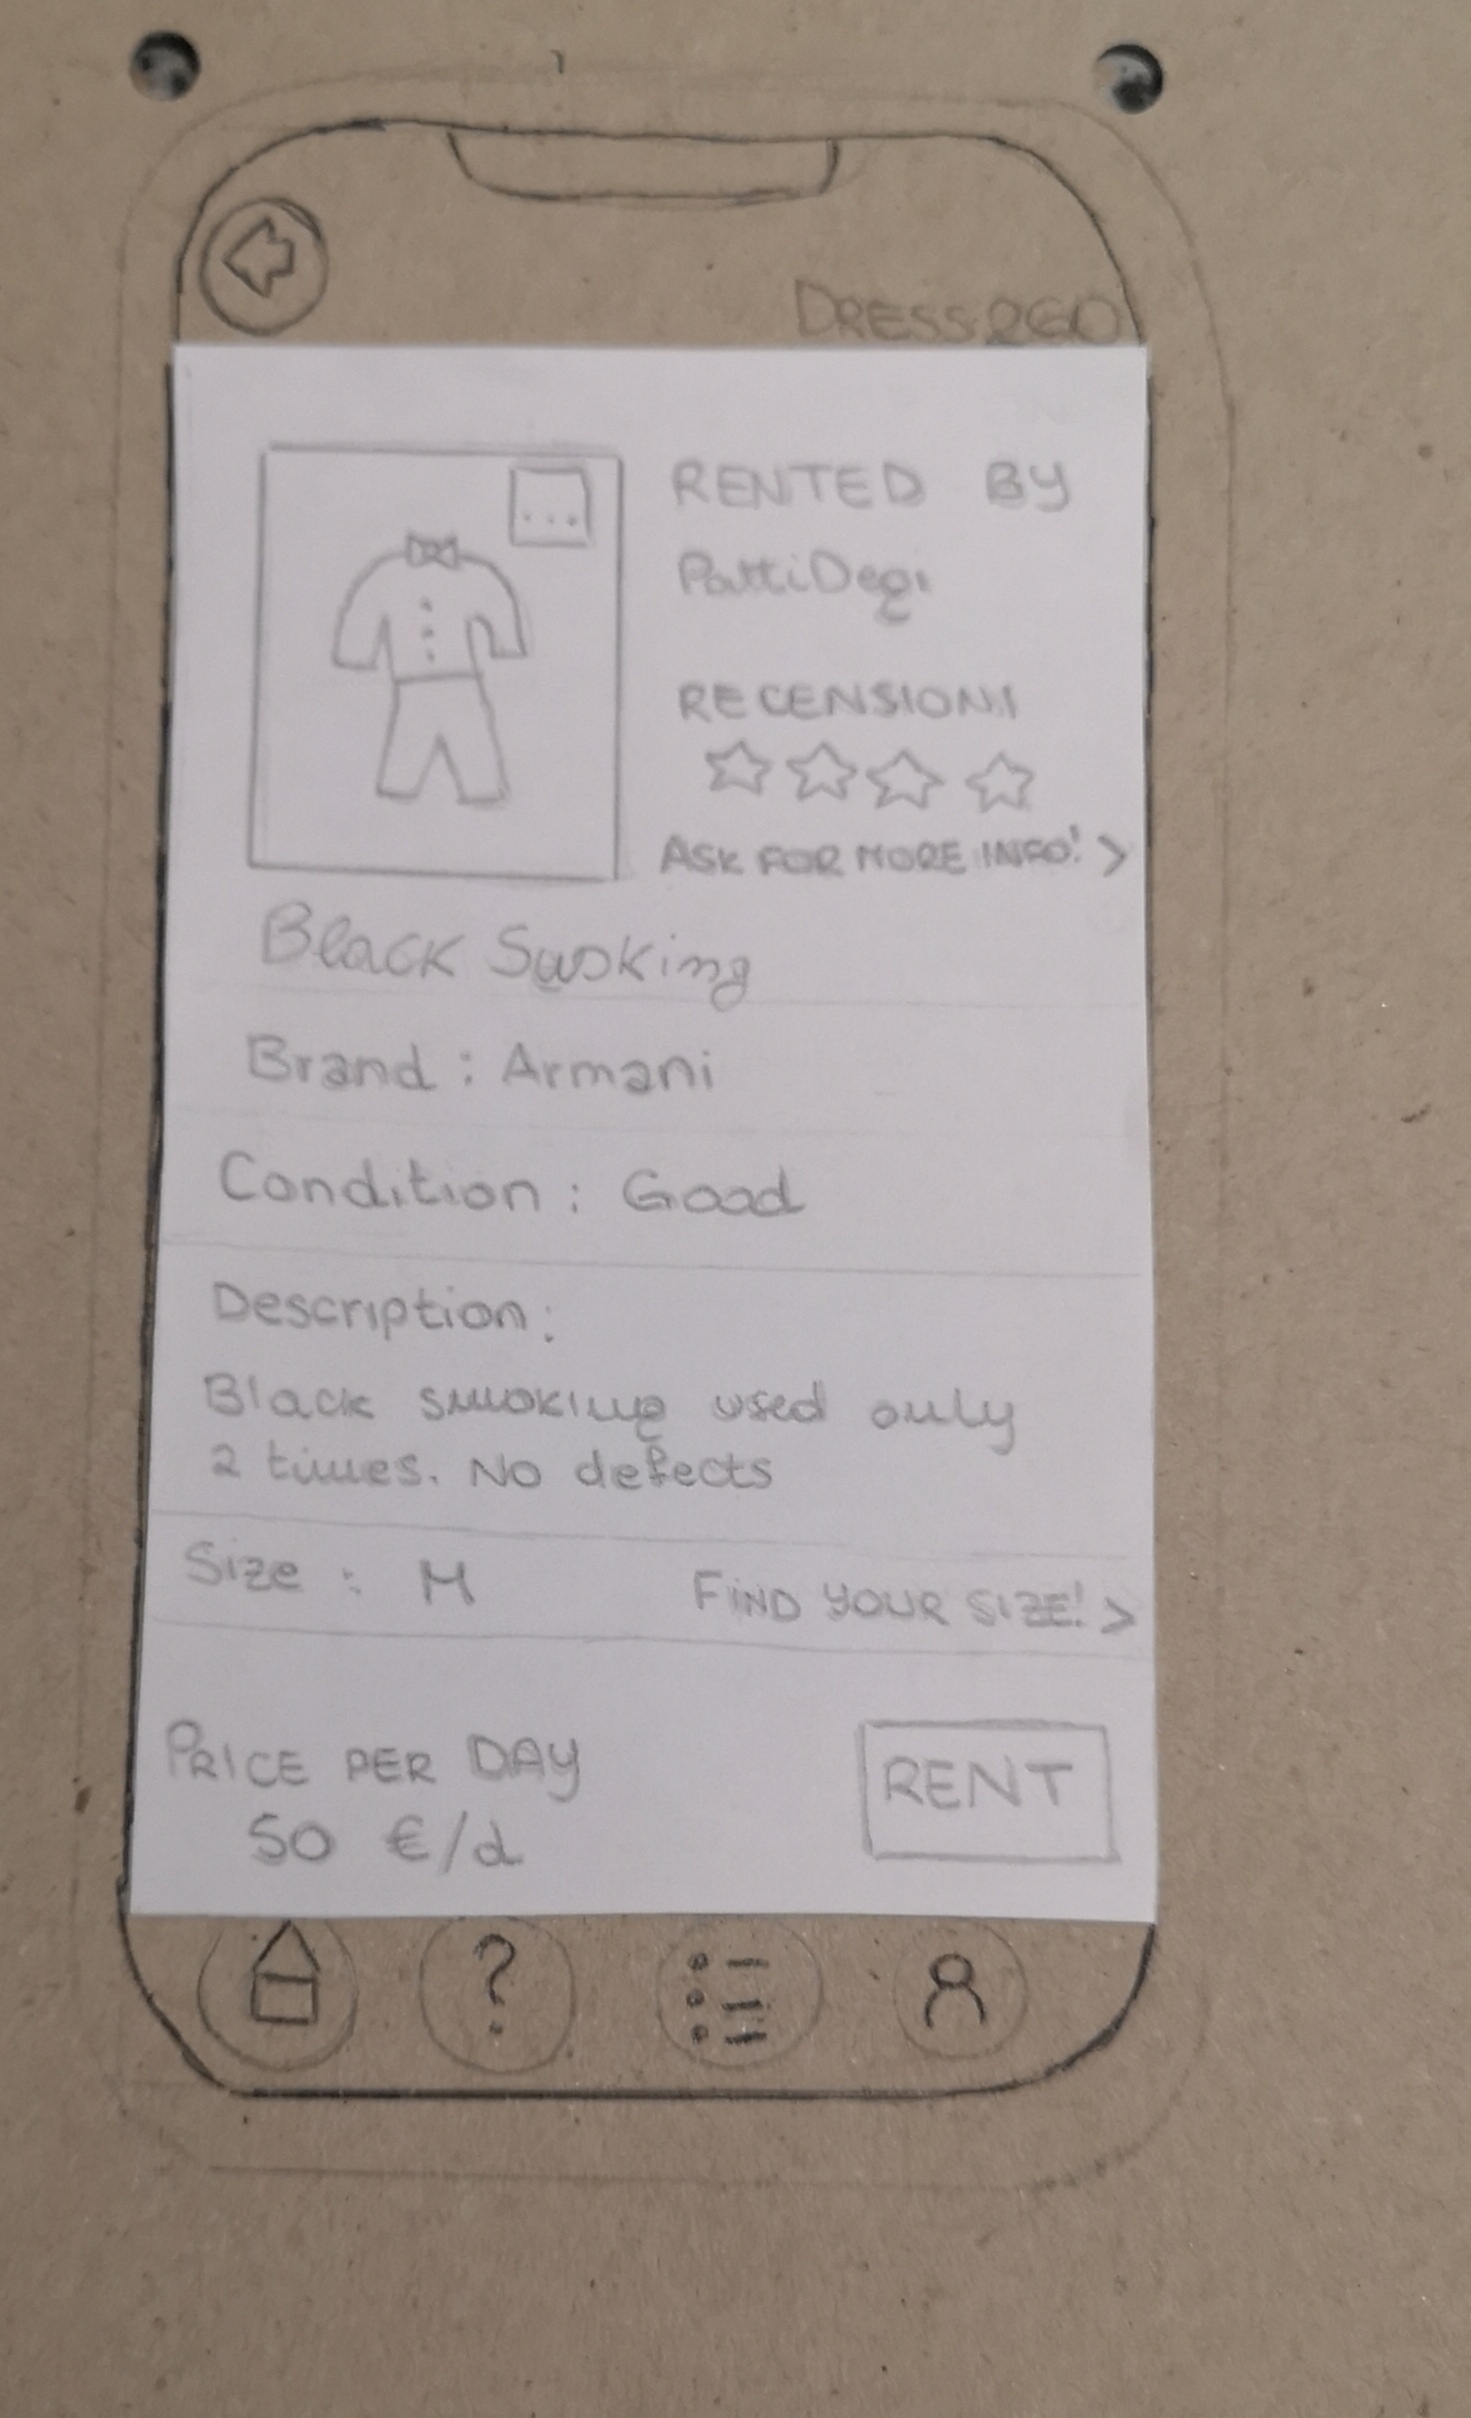 DRESS2GO
RENTED BY
PattiDegi
RECENSIONI
ASK FOR MORE INFO! >
Black Smoking
Brand : Armani
Condition : Good
Description :
Black smoking used only
2 times. No defects
Size : M
FIND YOUR SIZE! >
PRICE PER DAY
50 €/d
RENT
?